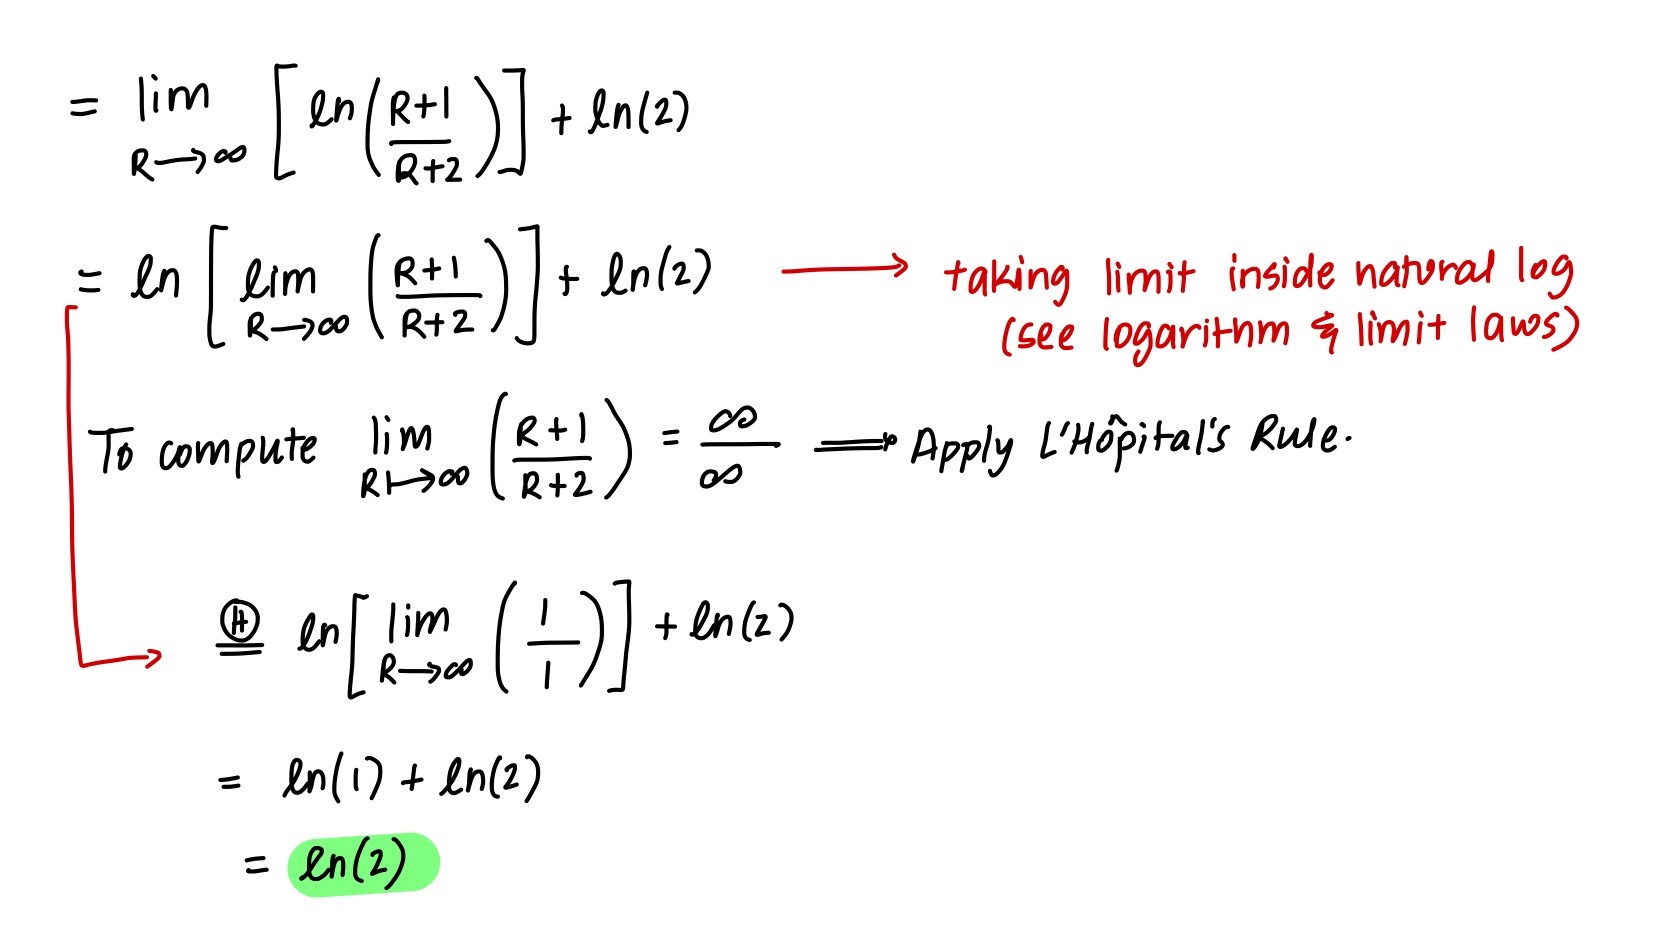 = lim R→∞ [ln((R+1)/(R+2))] + ln(2)
= ln [lim R→∞ ((R+1)/(R+2))] + ln(2) → taking limit inside natural log
(see logarithm & limit laws)
To compute lim R↦∞ ((R+1)/(R+2)) = ∞/∞ ⟹ Apply L'Hôpital's Rule.
Ⓗ = ln[lim R→∞ (1/1)] + ln(2)
= ln(1) + ln(2)
= ln(2)